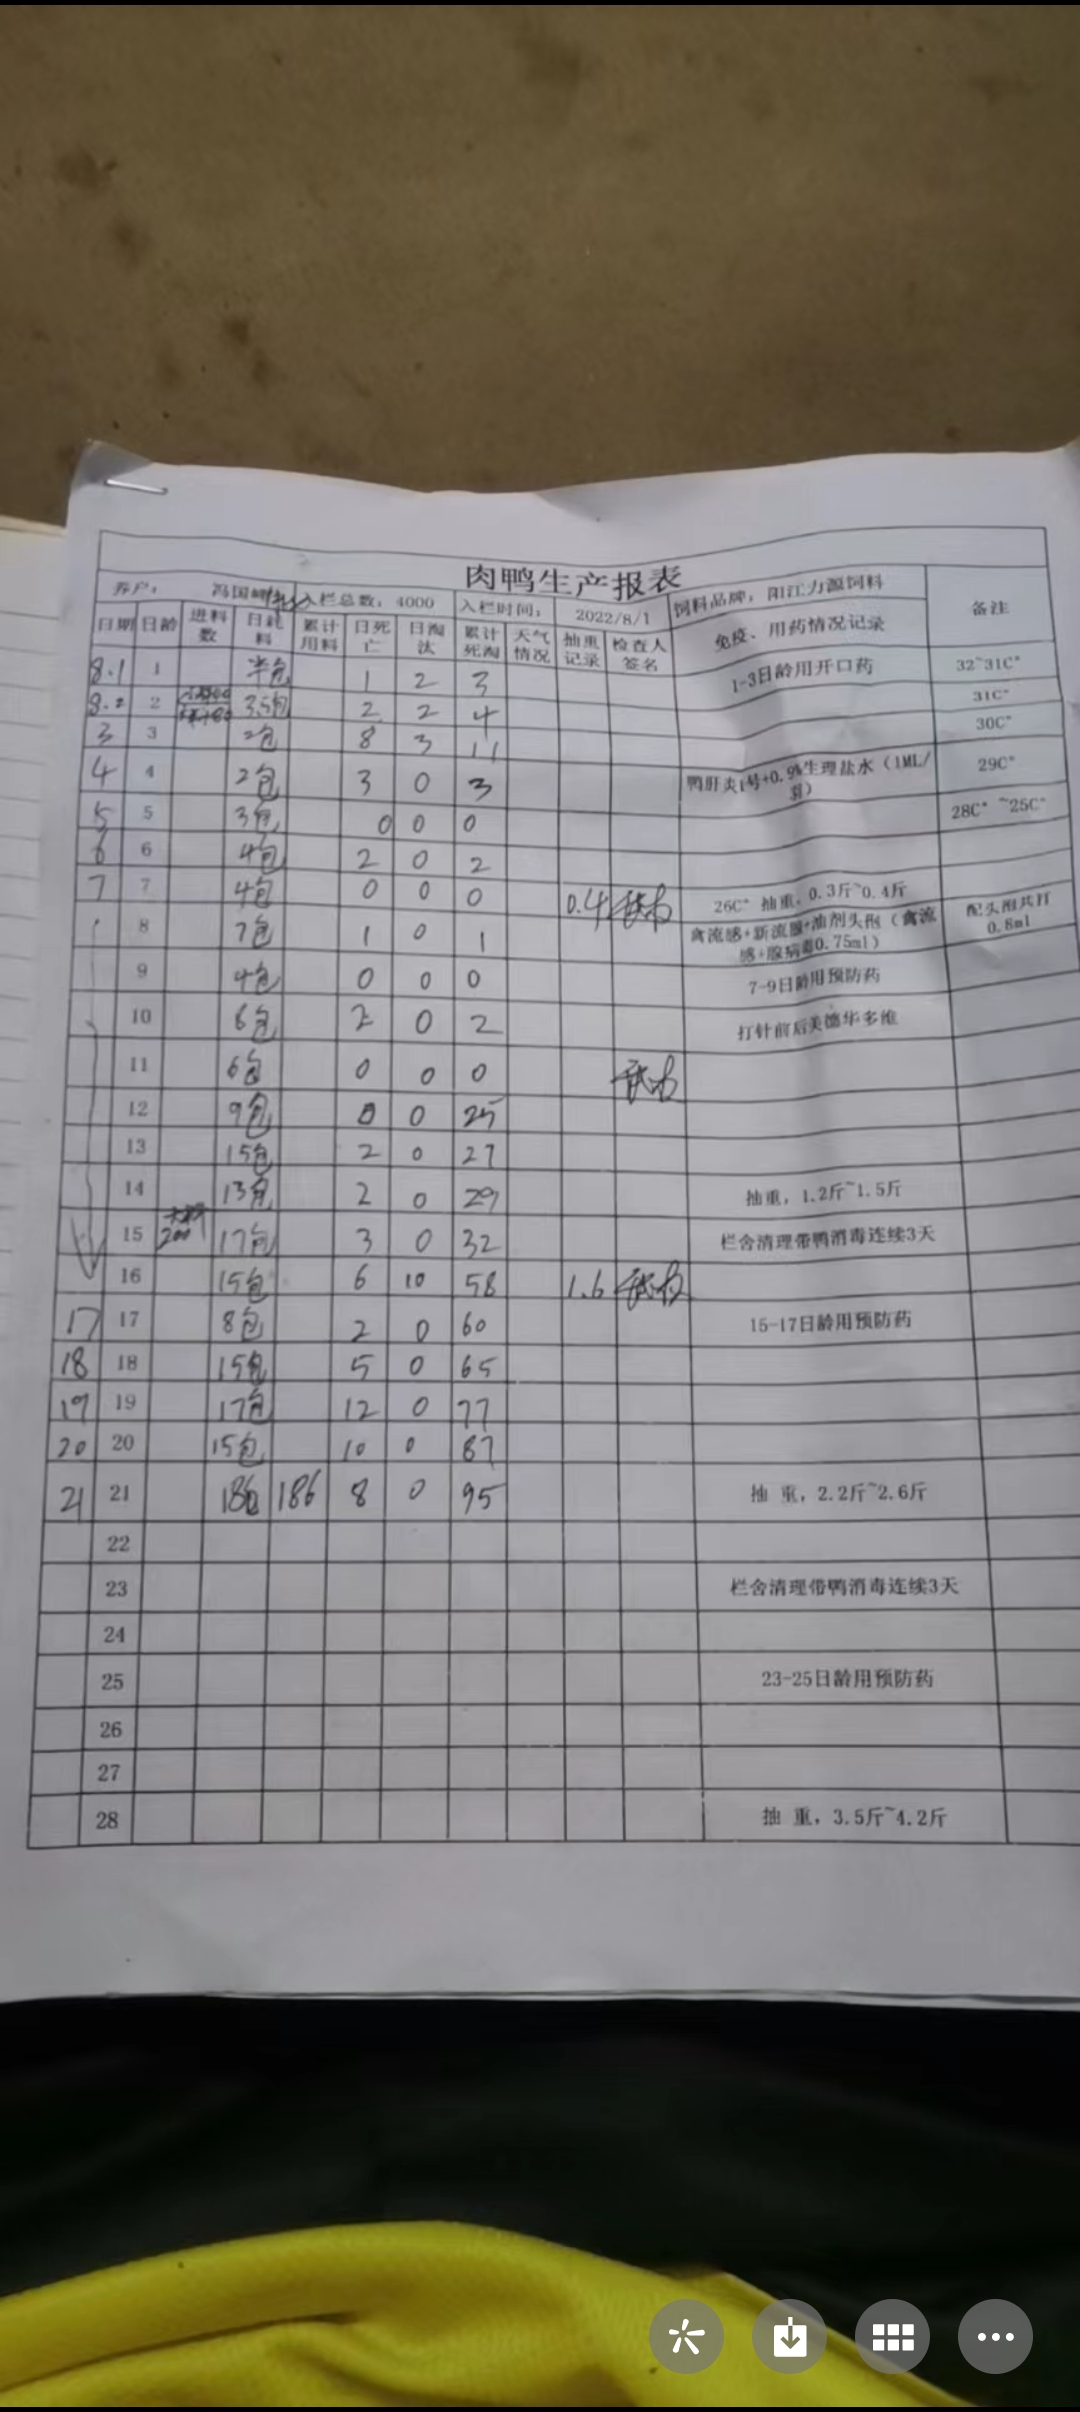 肉鸭生产报表
养户： 冯国 入栏总数：4000 入栏时间： 2022/8/1 饲料品牌：阳江力源饲料 备注
日期 日龄 进料数 日耗料 累计用料 日死亡 日淘汰 累计死淘 天气情况 抽重记录 检查人签名 免疫、用药情况记录
8.1 1 半包 1 2 3 1-3日龄用开口药 32~31C°
8.2 2 3.5包 2 2 4 31C°
3 3 2包 8 3 11 30C°
4 4 2包 3 0 3 鸭肝炎1号+0.9%生理盐水（1ML/羽） 29C°
5 5 3包 0 0 0 28C° ~25C°
6 6 4包 2 0 2
7 7 4包 0 0 0 0.4 26C° 抽重，0.3斤~0.4斤
8 7包 1 0 1 禽流感+新流腺+油剂头孢（禽流感+腺病毒0.75ml） 配头孢共打0.8ml
9 4包 0 0 0 7-9日龄用预防药
10 6包 2 0 2 打针前后美德华多维
11 6包 0 0 0
12 9包 0 0 25
13 15包 2 0 27
14 13包 2 0 29 抽重，1.2斤~1.5斤
15 200 17包 3 0 32 栏舍清理带鸭消毒连续3天
16 15包 6 10 58 1.6
17 17 8包 2 0 60 15-17日龄用预防药
18 18 15包 5 0 65
19 19 17包 12 0 77
20 20 15包 10 0 87
21 21 18包 186 8 0 95 抽 重，2.2斤~2.6斤
22
23 栏舍清理带鸭消毒连续3天
24
25 23-25日龄用预防药
26
27
28 抽 重，3.5斤~4.2斤